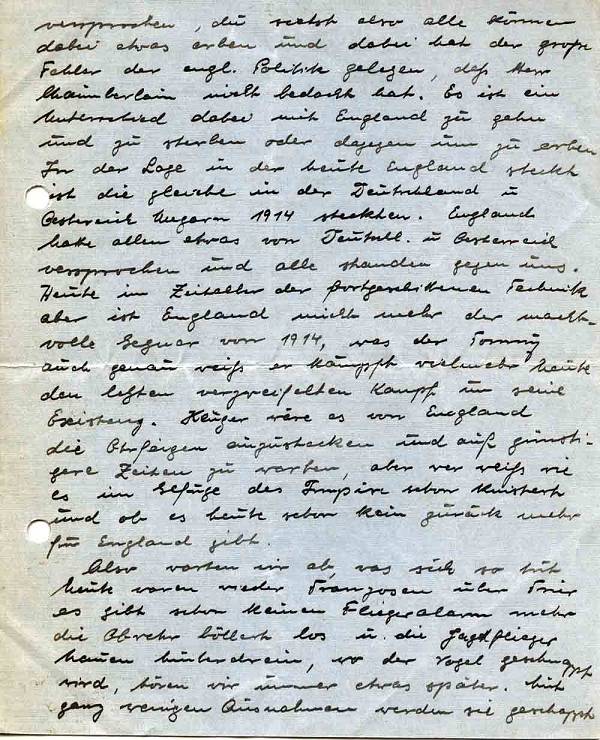 versprochen, du siehst also alle können
dabei etwas erben und dabei hat der große
Fehler der engl. Politik gelegen, daß Herr
Chamberlain nicht bedacht hat. Es ist ein
Unterschied dabei mit England zu gehn
und zu sterben oder dagegen um zu erben
In der Lage in der heute England steckt
ist die gleiche in der Deutschland u
Oesterreich Ungarn 1914 steckten. England
hatte allen etwas von Deutschl. u Oesterreich
versprochen und alle standen gegen uns.
Heute im Zeitalter der fortgeschittenen Technik
aber ist England nicht mehr der macht-
volle Gegner von 1914, was der Tommy
auch genau weiß er kämpft vielmehr heute
den letzten verzweifelten Kampf um seine
Existenz. Klüger wäre es von England
die Ohrfeigen einzustecken und auf günsti-
gere Zeiten zu warten, aber wer weiß wie
es im Gefüge des Empire schon knistert
und ob es heute schon kein zurück mehr
für England gibt.
Also warten wir ab, was sich so tut
heute waren wieder Franzosen über Trier
es gibt schon keinen Fliegeralarm mehr
die Abwehr böllert los u. die Jagdflieger
hauen hinterdrein, wo der Vogel geschnappt
wird, hören wir immer etwas später. Mit
ganz wenigen Ausnahmen werden sie geschnappt